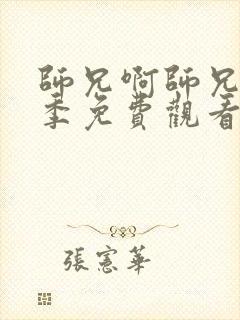 師兄啊師兄
季免費觀看
張憲華